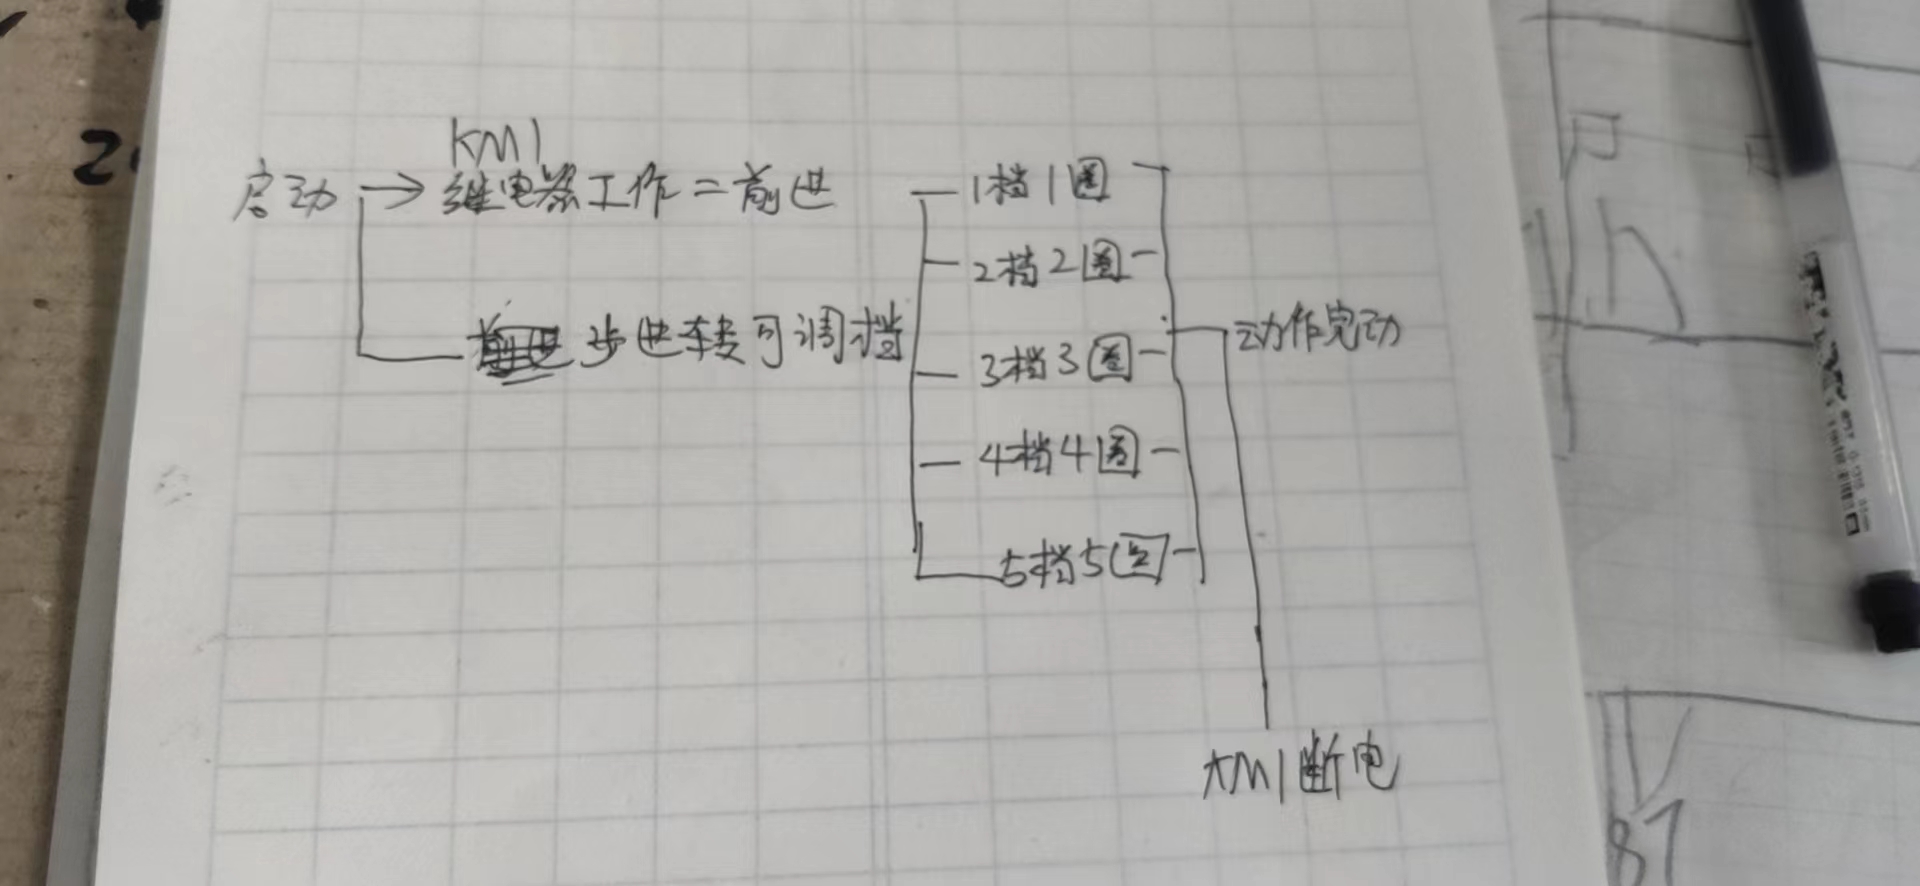 KM1
启动 → 继电器工作 = 前进
步进转可调档
1档1圈
2档2圈
3档3圈
4档4圈
5档5圈
动作完动
KM1断电